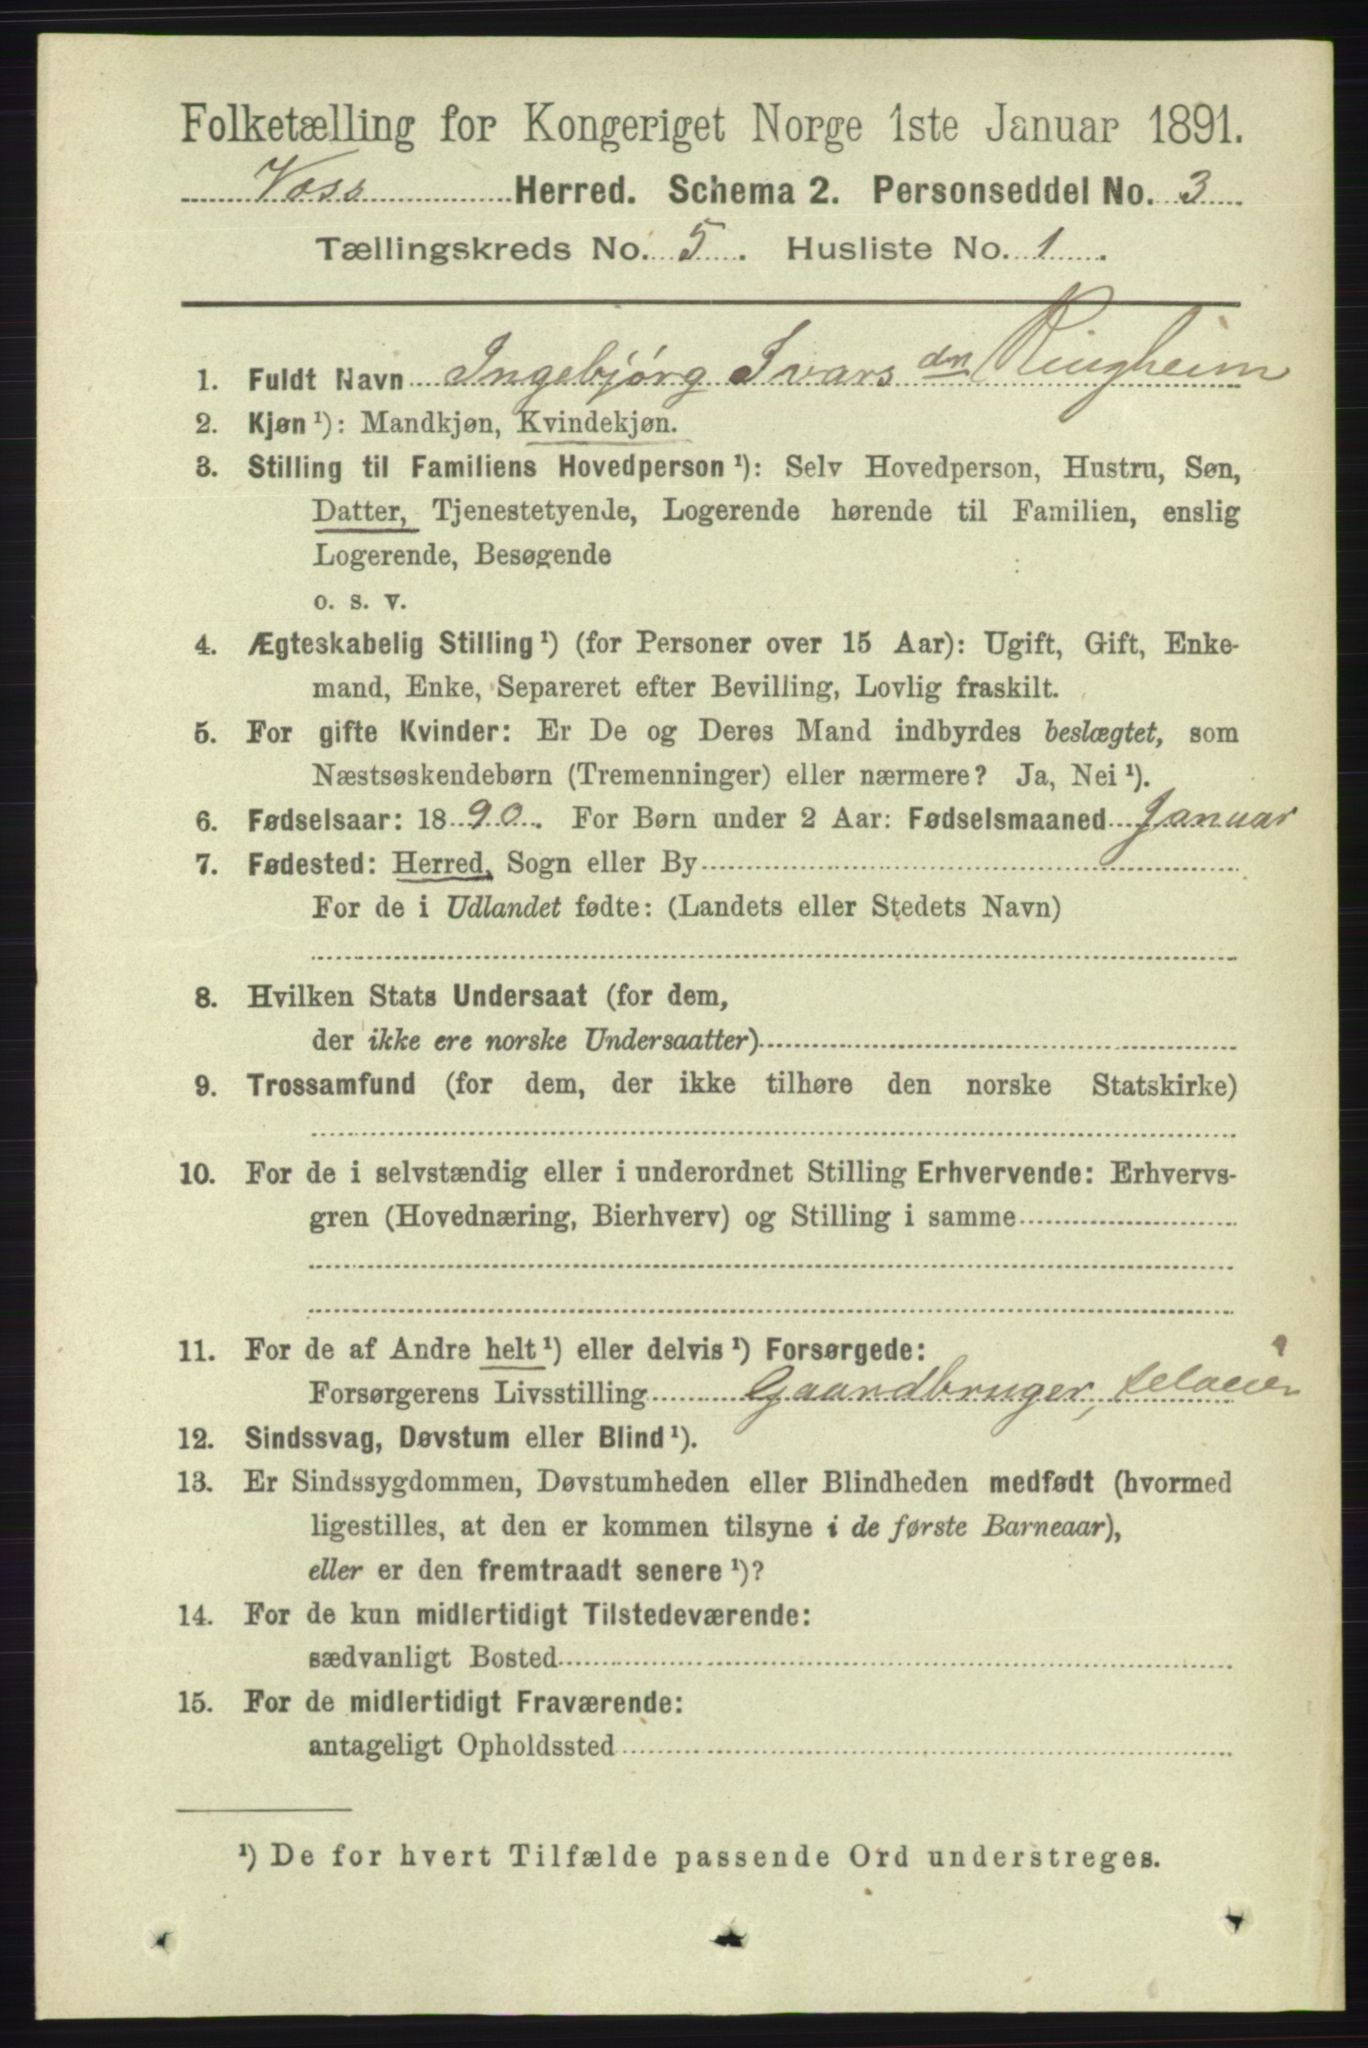 Folketælling for Kongeriget Norge 1ste Januar 1891.
Voss Herred. Schema 2. Personseddel No. 3
Tællingskreds No. 5. Husliste No. 1.
1. Fuldt Navn Ingebjørg Ivars dn Ringheim
2. Kjøn ¹): Mandkjøn, Kvindekjøn.
3. Stilling til Familiens Hovedperson ¹): Selv Hovedperson, Hustru, Søn,
Datter, Tjenestetyende, Logerende hørende til Familien, enslig
Logerende, Besøgende
o. s. v.
4. Ægteskabelig Stilling ¹) (for Personer over 15 Aar): Ugift, Gift, Enke-
mand, Enke, Separeret efter Bevilling, Lovlig fraskilt.
5. For gifte Kvinder: Er De og Deres Mand indbyrdes beslægtet, som
Næstsøskendebørn (Tremenninger) eller nærmere? Ja, Nei ¹).
6. Fødselsaar: 1890. For Børn under 2 Aar: Fødselsmaaned Januar
7. Fødested: Herred, Sogn eller By
For de i Udlandet fødte: (Landets eller Stedets Navn)
8. Hvilken Stats Undersaat (for dem,
der ikke ere norske Undersaatter)
9. Trossamfund (for dem, der ikke tilhøre den norske Statskirke)
10. For de i selvstændig eller i underordnet Stilling Erhvervende: Erhvervs-
gren (Hovednæring, Bierhverv) og Stilling i samme
11. For de af Andre helt ¹) eller delvis ¹) Forsørgede:
Forsørgerens Livsstilling Gaardbruger, selveier
12. Sindssvag, Døvstum eller Blind ¹).
13. Er Sindssygdommen, Døvstumheden eller Blindheden medfødt (hvormed
ligestilles, at den er kommen tilsyne i de første Barneaar),
eller er den fremtraadt senere ¹)?
14. For de kun midlertidigt Tilstedeværende:
sædvanligt Bosted
15. For de midlertidigt Fraværende:
antageligt Opholdssted
¹) De for hvert Tilfælde passende Ord understreges.